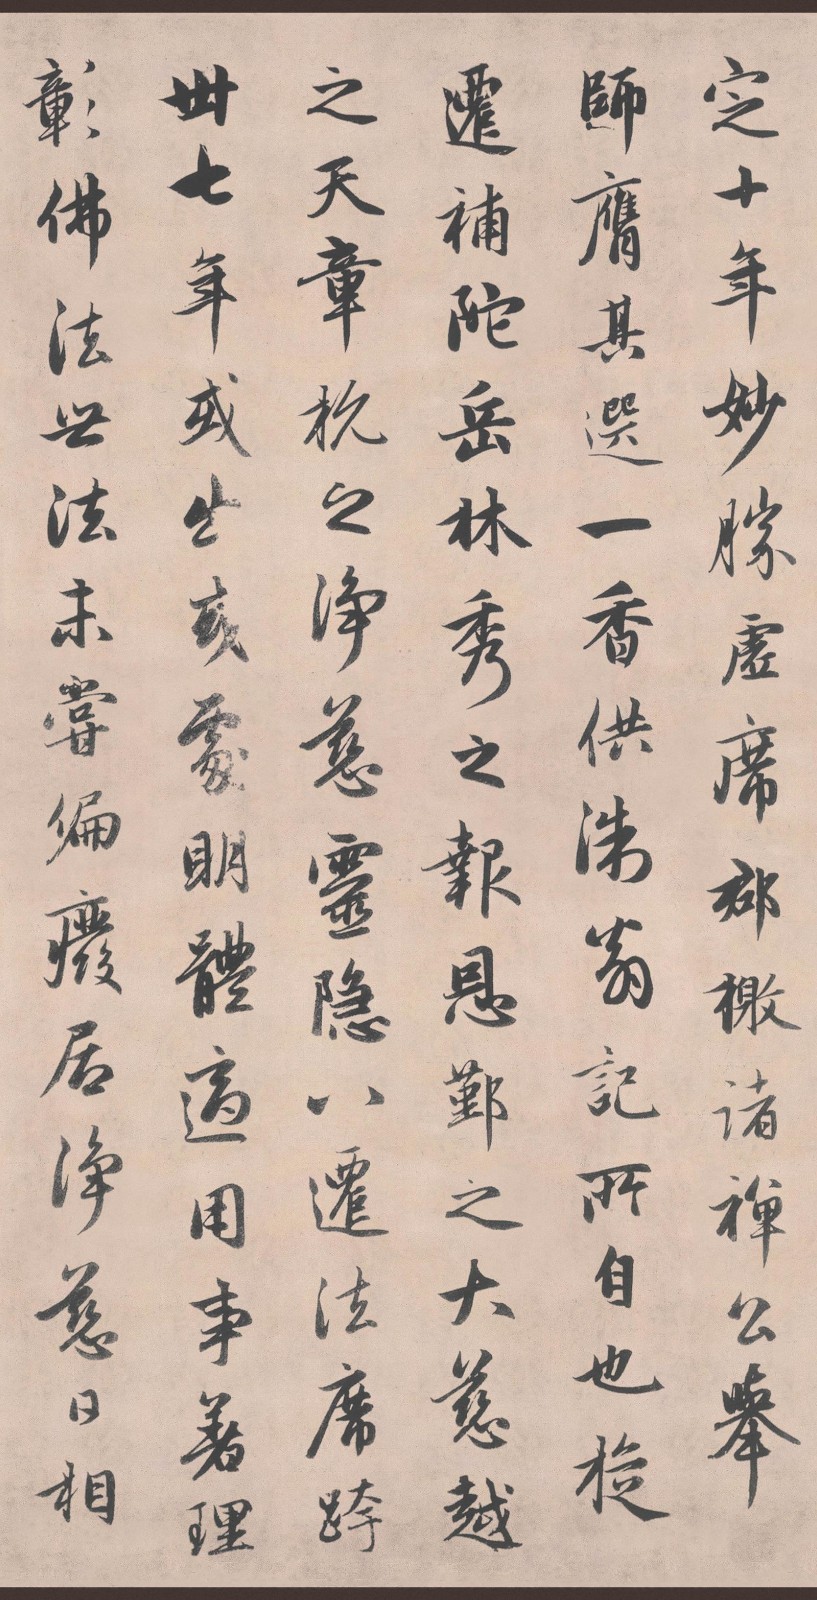 定十年妙勝虛席郡檄諸禪公舉
師膺其選一香供洙翁記所自也從
遷補陀岳林秀之報恩鄞之大慈越
之天章杭之淨慈靈隱八遷法席跨
卌七年或出或處明體適用事著理
彰佛法世法未嘗偏癈居淨慈日相